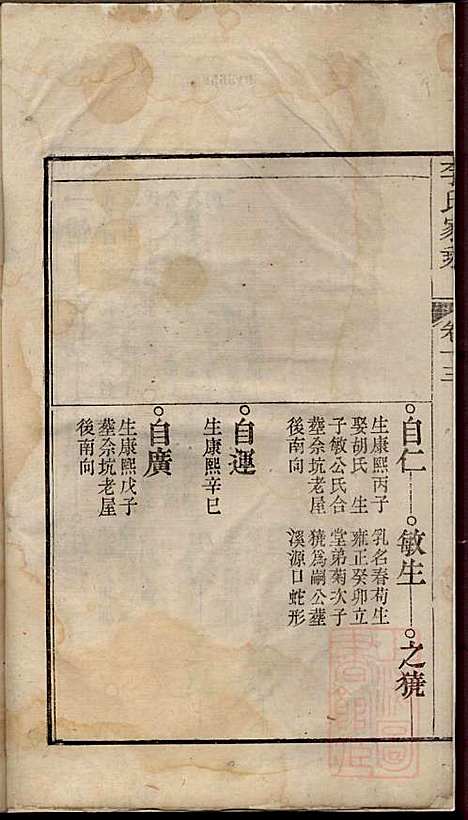 李氏家乘
卷十三
自仁
生康熙丙子
娶胡氏 生
子敏公氏合
塟佘坑老屋
後南向
敏生
乳名春荀生
雍正癸卯立
堂弟菊次子
獟為嗣公塟
溪源口蛇形
之獟
自運
生康熙辛巳
自廣
生康熙戊子
塟佘坑老屋
後南向